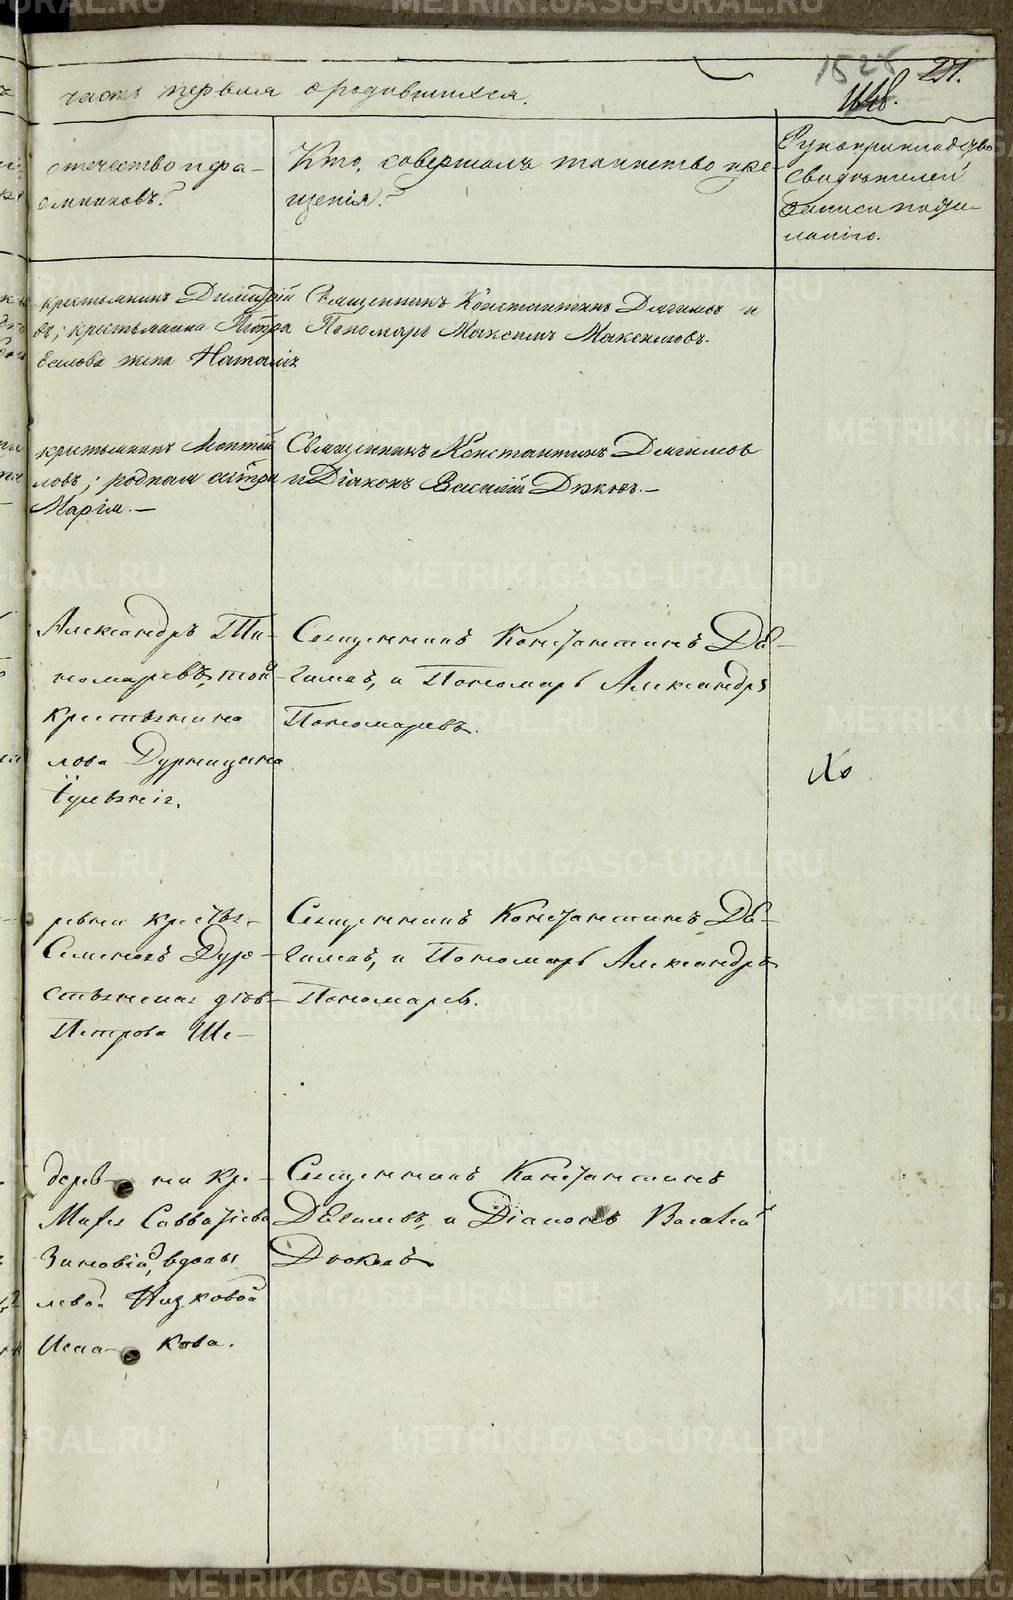 часть первая о родившихся.
1528 21.
отечество и фа-
милиовъ?
Кто, совершалъ таинство кре-
щенія?
Рукоприкладство
Свидѣтелей
записи по же-
ланію.
крестьянинъ Димитрій
въ; крестьянина Петра
жена Наталія
Священникъ Константинъ Дягилевъ и
Пономарь Максимъ Максимовъ.
крестьянинъ
ловъ; родная сестра
Марія.—
Священникъ Константинъ Дягилевъ
и Діаконъ Василій Дьковъ.—
Александръ По-
номаревъ, той
крестьянина
лова Дурницына
Іуліанія.
Священникъ Константинъ Дя-
гилевъ, и Пономарь Александръ
Пономаревъ.
No
ревни крестья-
Семеновъ Дур-
стьянская дѣв-
Петрова Ше-
Священникъ Константинъ Дя-
гилевъ, и Пономарь Александръ
Пономарев.
дерев- ни кре-
Савватіева
Зиновій, вдовы
левой Низковой
Исаа- кова.
Священникъ Константинъ
Дягилевъ, и Діаконъ Василій
METRIKI.GASO-URAL.RU